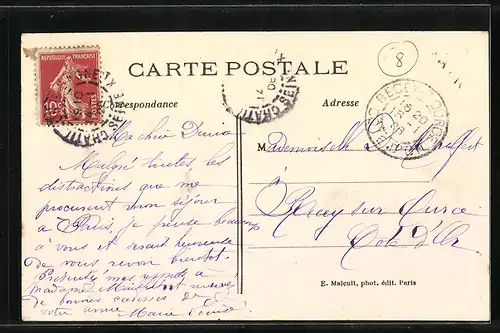 8
RÉPUBLIQUE FRANÇAISE
10
POSTES
CARTE POSTALE
Correspondance
Adresse
RECEY-S-OURCE
CHATILLON
SEINE
Ma chère Denise
Malgré toutes les
distractions que me
procurent mon séjour
à Paris, je pense beaucoup
à vous et serait heureuse
de vous revoir bientôt.
Présentez mes respects à
madame
de bonnes caresses de
votre amie Marie Louise
Mademoiselle D.
Recey sur Ource
Côte d'Or
E. Malcuit, phot. édit. Paris